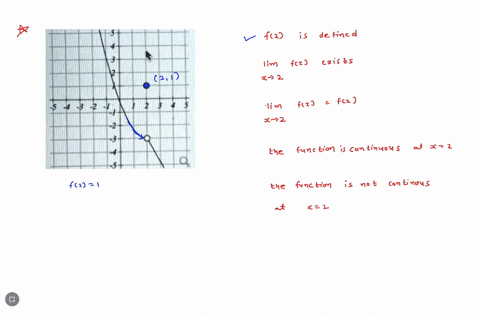 5
4
3
2
1
(2,1)
-5 -4 -3 -2 -1 1 2 3 4 5
-1
-2
-3
-4
-5
f(2) = 1
f(2) is defined
lim f(x) exists
x→2
lim f(x) = f(2)
x→2
the function is continuous at x=2
the function is not continous
at x=2